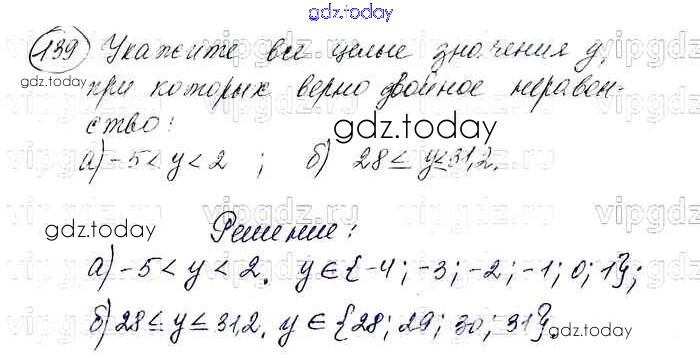 gdz.today
139 Укажите все целые значения y,
gdz.today
при которых верно двойное неравен-
ство:
gdz.today
а) -5 < y < 2 ; б) 28 ≤ y ≤ 31,2.
gdz.today
Решение:
gdz.today
а) -5 < y < 2. y ∈ {-4; -3; -2; -1; 0; 1};
б) 28 ≤ y ≤ 31,2. y ∈ {28; 29; 30; 31}.
gdz.today